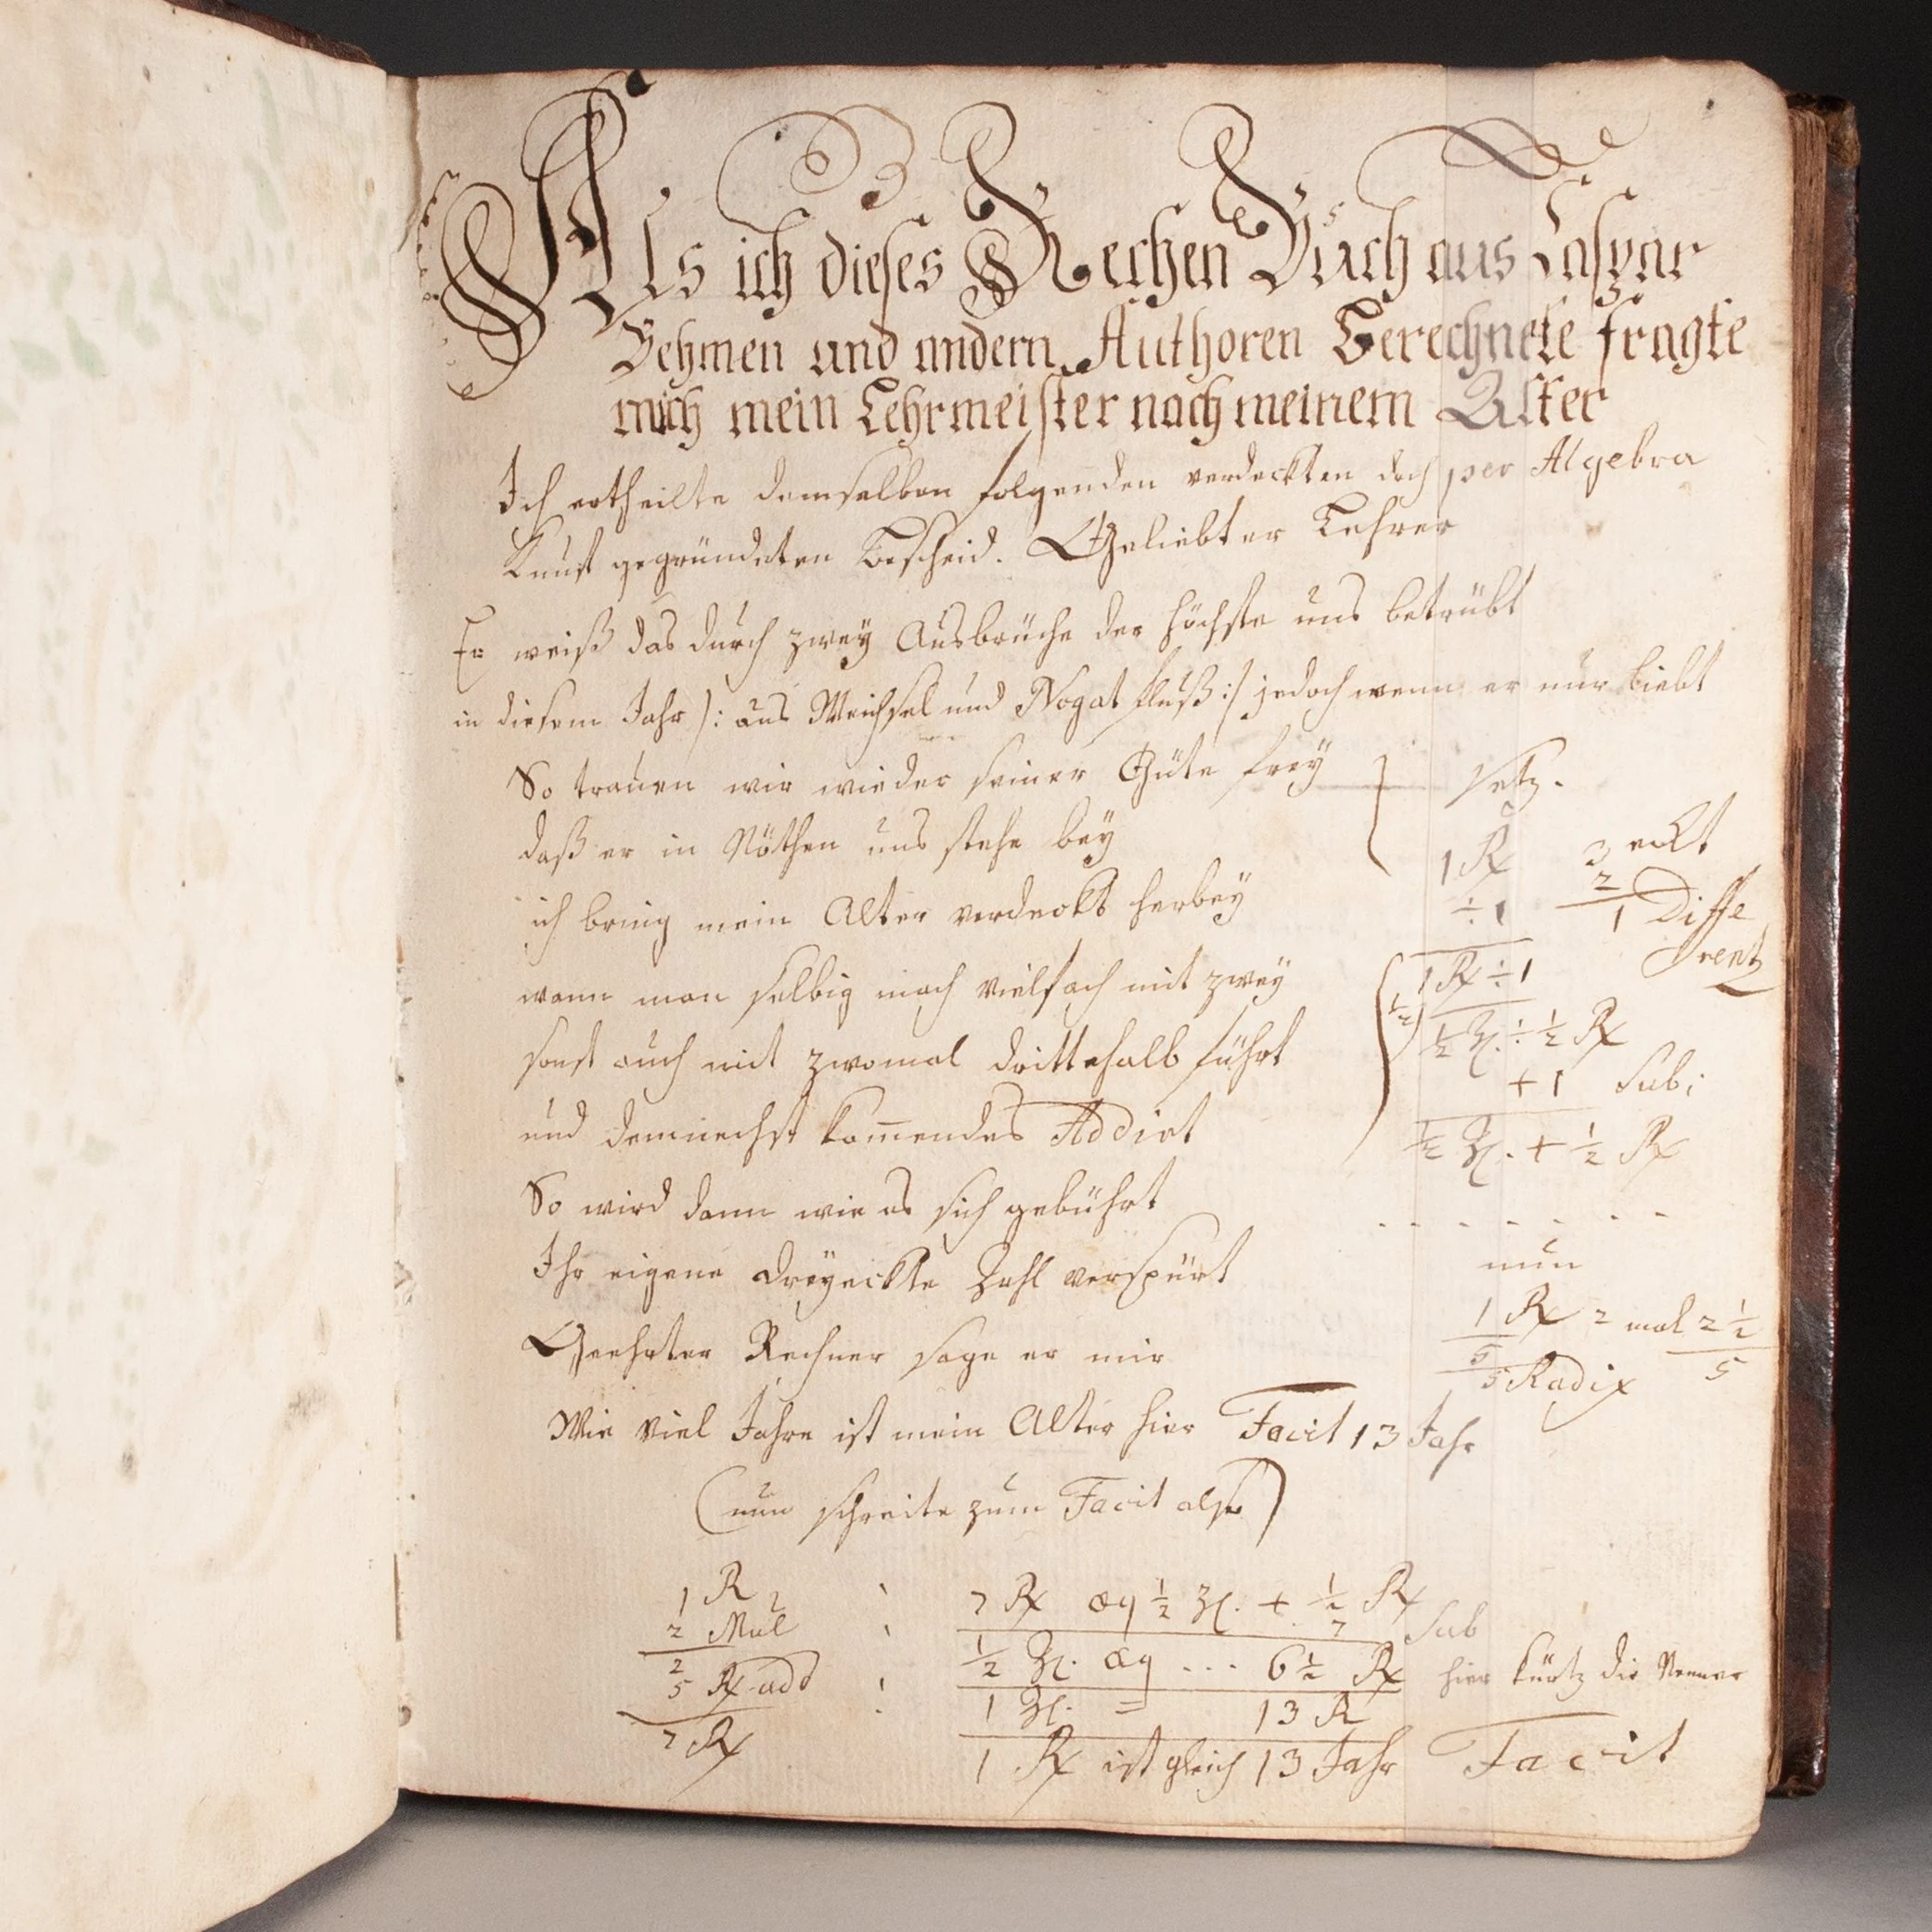 Als ich dieses Rechen Buch aus Caspar
Behmen und andern Authoren Berechnete fragte
mich mein Lehrmeister nach meinem Alter
Ich ertheilte demselben folgenden verdeckten doch per Algebra
Kunst gegründeten Bescheid. Geliebter Lehrer
Er weiß das durch zwey Ausbrüche der Höchste uns betrübt
in diesem Jahr /: aus Weichsel und Nogat fluß :/ jedoch wenn er nur liebt
So trauen wir wieder seiner Güte frey
daß er in Nöthen uns stehe bey
ich bring mein Alter verdeckt herbey
wann man selbig mach vielfach mit zwey
sonst auch mit zwomal drittehalb führt
und demnechst kom̄endes Addirt
So wird dann wie es sich gebührt
Ihr eigene dreyeckte Zahl verspürt
Geehrter Rechner sage er mir
Wie viel Jahre ist mein Alter hier Facit 13 Jahr
(nun schreite zum Facit also)
setz.
1 R 3 eckt
÷ 1 2
1 Diffe
rentz
1 R ÷ 1
½) ½ Z. ÷ ½ R
+ 1 Sub:
½ Z. + ½ R
nun
1 R 2 mal 2 ½
5 5
5 Radix
1 R
2 Mul
2
5 R add
7 R
7 R æq ½ Z. + ½ R
7 Sub
½ Z. æq ... 6 ½ R hier kürtz die Nenner
1 Z. = 13 R
1 R ist gleich 13 Jahr Facit